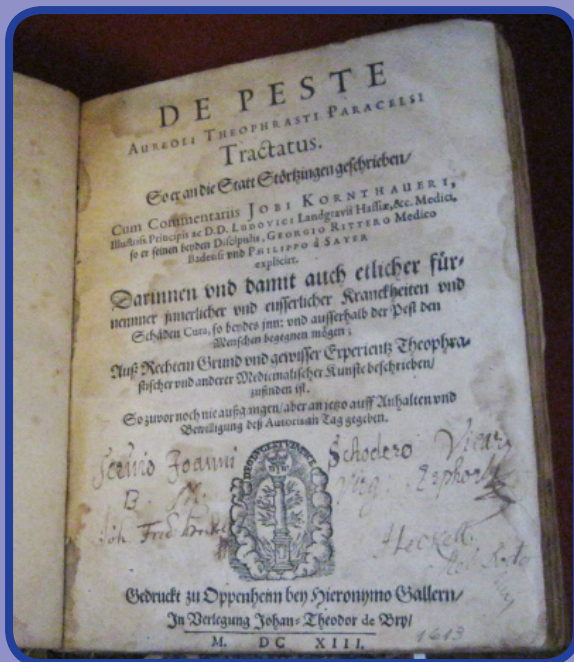 DE PESTE
AUREOLI THEOPHRASTI PARACELSI
Tractatus.
So er an die Statt Störtzingen geschrieben/
Cum Commentariis JOBI KORNTHAUERI,
Illustriss. Principis ac D.D. LUDOVICI Landgravii Hassiæ, &c. Medici,
so er seinen beyden Discipulis, GEORGIO RITTERO Medico
Badensi vnd PHILIPPO à SAYER
explicirt.
Darinnen vnd damit auch etlicher für-
nemmer jnnerlicher vnd eusserlicher Kranckheiten vnd
Schäden Cura, so beydes jnn: vnd ausserhalb der Pest den
Menschen begegnen mögen;
Auß Rechtem Grund vnd gewisser Experientz Theophra-
stischer vnd anderer Medicinalischer Kunste beschrieben/
zufinden ist.
So zuvor noch nie außgangen/aber an jetzo auff Anhalten vnd
Bewilligung deß Autoris an Tag gegeben.
Joanni Schodero
Gedruckt zu Oppenheim bey Hieronymo Gallern/
In Verlegung Johan-Theodor de Bry/
M. DC XIII.
1613